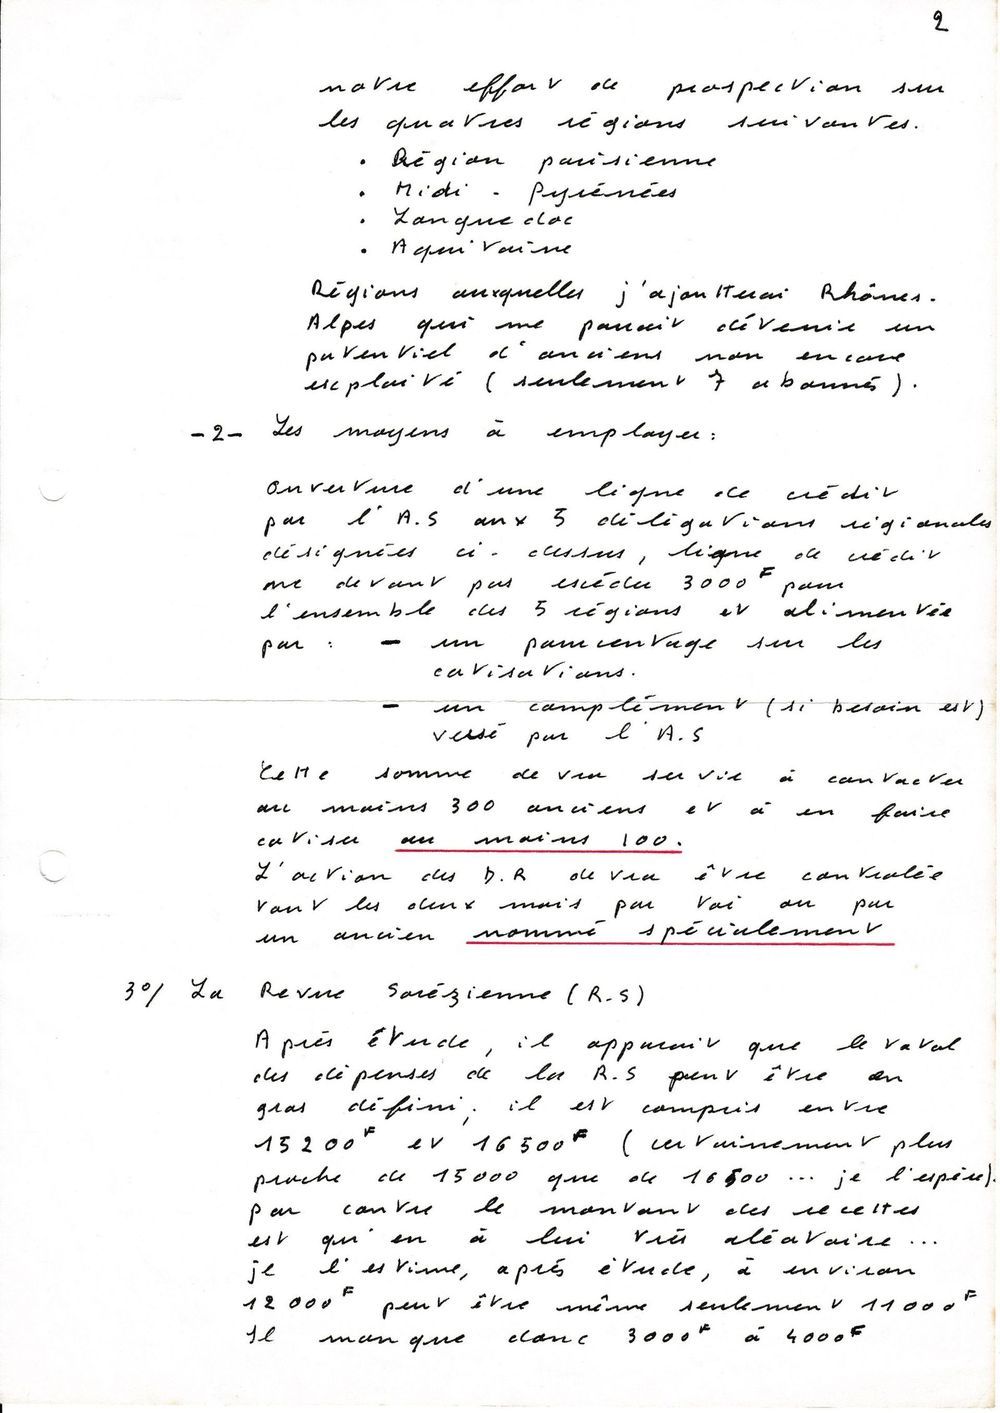 2
notre effort de prospection sur
les quatres régions suivantes.
. Région parisienne
. Midi - Pyrénées
. Languedoc
. Aquitaine
Régions auxquelles j'ajoutterai Rhônes-
Alpes qui me parait dévenir un
potentiel d'anciens non encore
exploité (seulement 7 abonnés).
-2- Les moyens à employer :
Ouverture d'une ligne de crédit
par l'A.S aux 5 délégations régionales
désignées ci-dessus, ligne de crédit
ne devant pas excéder 3000F pour
l'ensemble des 5 régions et alimentée
par : - un pourcentage sur les
cotisations.
- un complément (si besoin est)
versé par l'A.S
Cette somme devra servir à contacter
au moins 300 anciens et à en faire
cotiser au moins 100.
L'action des D.R devra être controlée
tout les deux mois par toi ou par
un ancien nommé spécialement
3°/ La Revue Sorézienne (R.S)
Après étude, il apparait que le total
des dépenses de la R.S peut être en
gros défini; il est compris entre
15200F et 16500F (certainement plus
proche de 15000 que de 16500 ... je l'espère).
par contre le montant des recettes
est qu'en à lui très aléatoire ...
je l'estime, après étude, à environ
12000F peut être même seulement 11000F
Il manque donc 3000F à 4000F